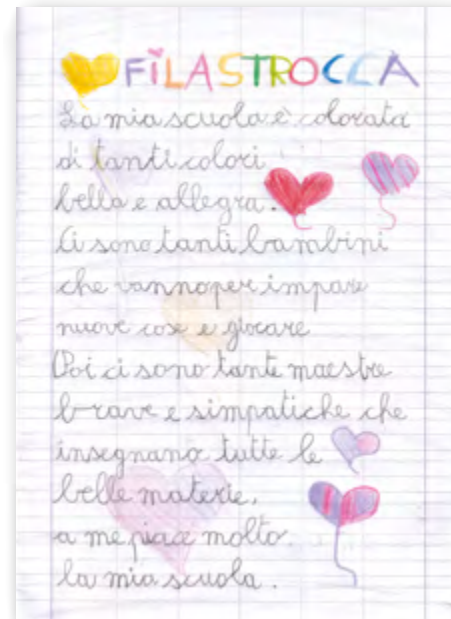 FILASTROCCA
La mia scuola è colorata
di tanti colori
bella e allegra.
Ci sono tanti bambini
che vanno per impare
nuove cose e giocare
Poi ci sono tante maestre
brave e simpatiche che
insegnano tutte le
belle materie,
a me piace molto
la mia scuola.